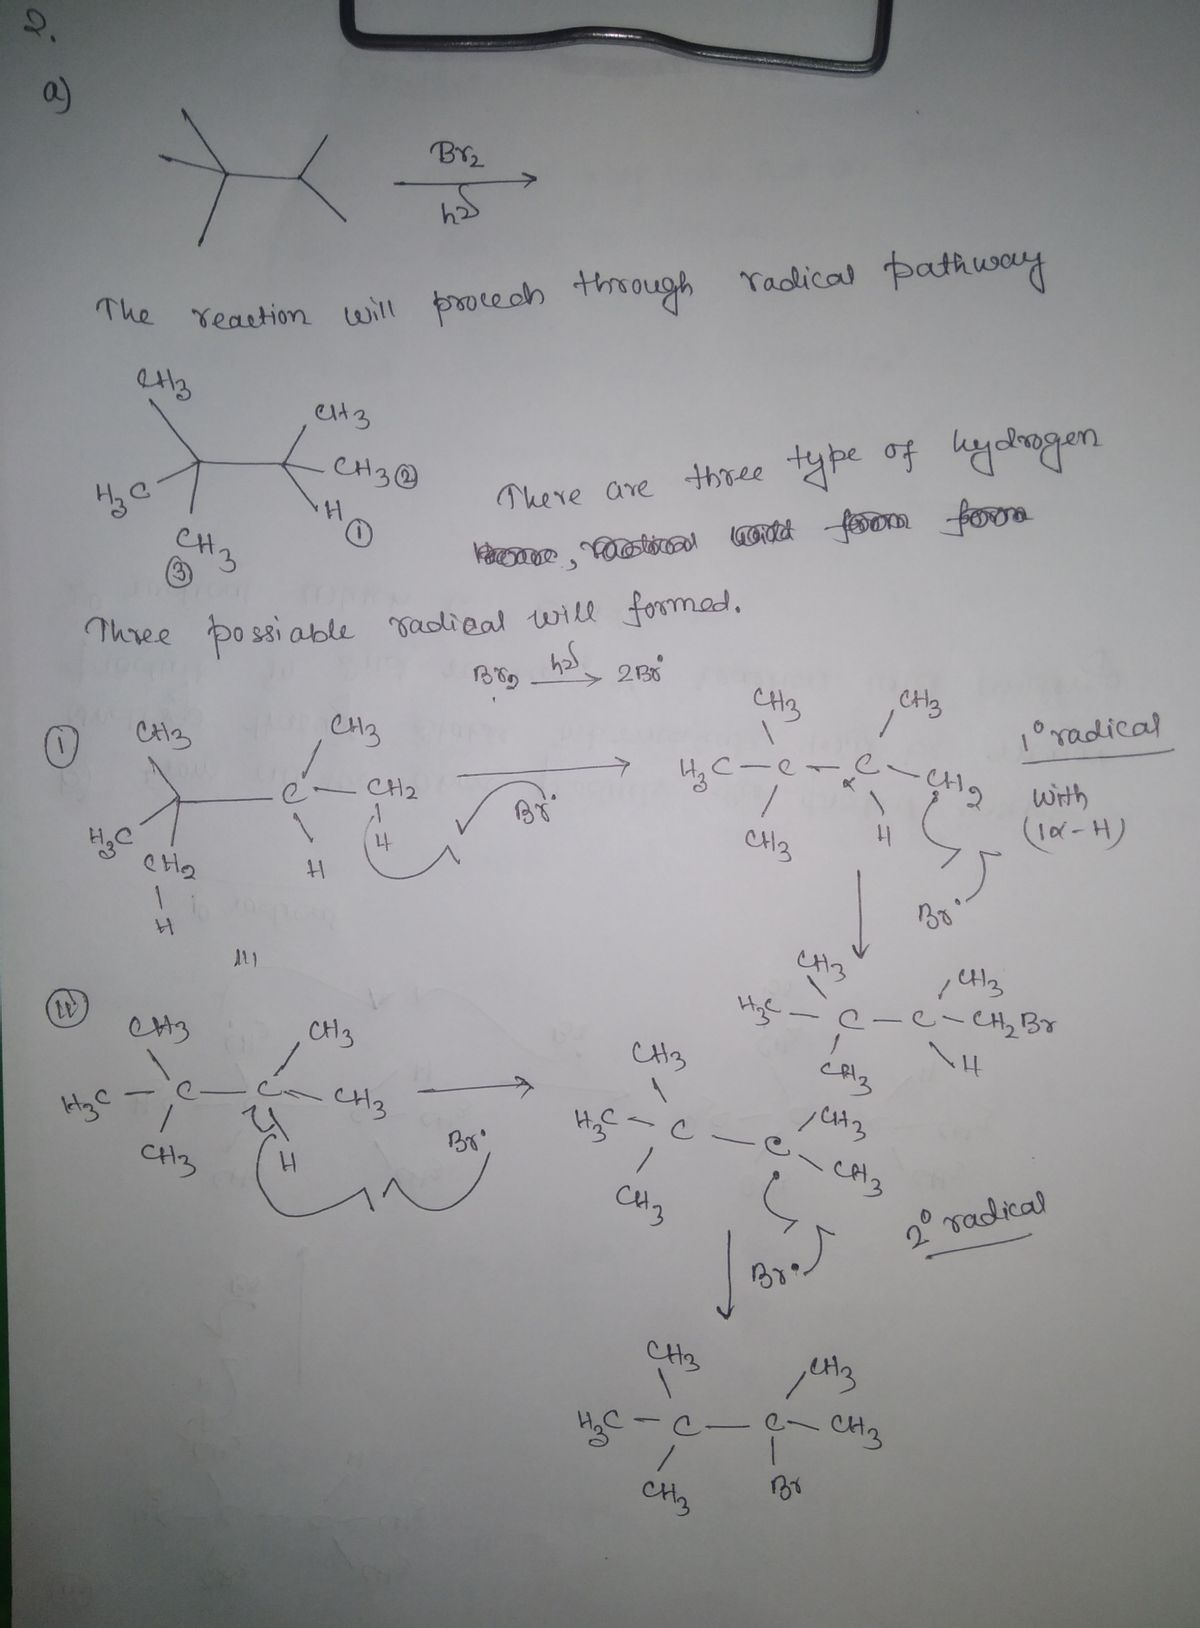 2.
a)
Br2
hν
The reaction will proceds through radical pathway
CH3
CH3
H3C
CH3 ②
H ①
CH3
③
There are three type of hydrogen
Three possiable radical will formed.
Br2 hν → 2Br•
①
CH3
CH3
C — CH2
H
H
H3C
CH2
H
Br•
CH3
CH3
H3C — C — C — CH2
α
CH3
H
1° radical
with
(1α-H)
Br•
CH3
CH3
H3C — C — C — CH2Br
CH3
H
CH3
CH3
H3C — C — C — CH3
CH3
H
Br•
CH3
CH3
H3C — C — C
CH3
CH3
2° radical
Br•
CH3
CH3
H3C — C — C — CH3
CH3
Br